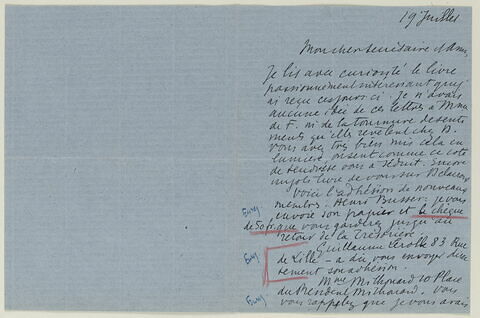 19 Juillet
Mon cher secrétaire et ami,
Je lis avec curiosité le livre
passionnément intéressant que j'
ai reçu ces jours ci. Je n'avais
aucune idée de ces lettres à Mme
de F. ni de la tournure de senti
ments qu'elle révèlent chez D.
Vous avez très bien mis cela en
lumière, on sent comme ce côté
de tendresse vous a séduit. Encore
un joli livre de vous sur Delacroix
Voici l'adhésion de nouveaux
membres. Henri Busser. je vous
envoie son papier et le chèque
de 50 fr. que vous garderez jusqu'au
retour de la Trésorière.
Guillaume Lerolle 83 Rue
de Lille - a dû vous envoyer direc
tement son adhésion.
Mme 10 Place
du Président Mithouard. Vous
vous rappelez que je vous avais